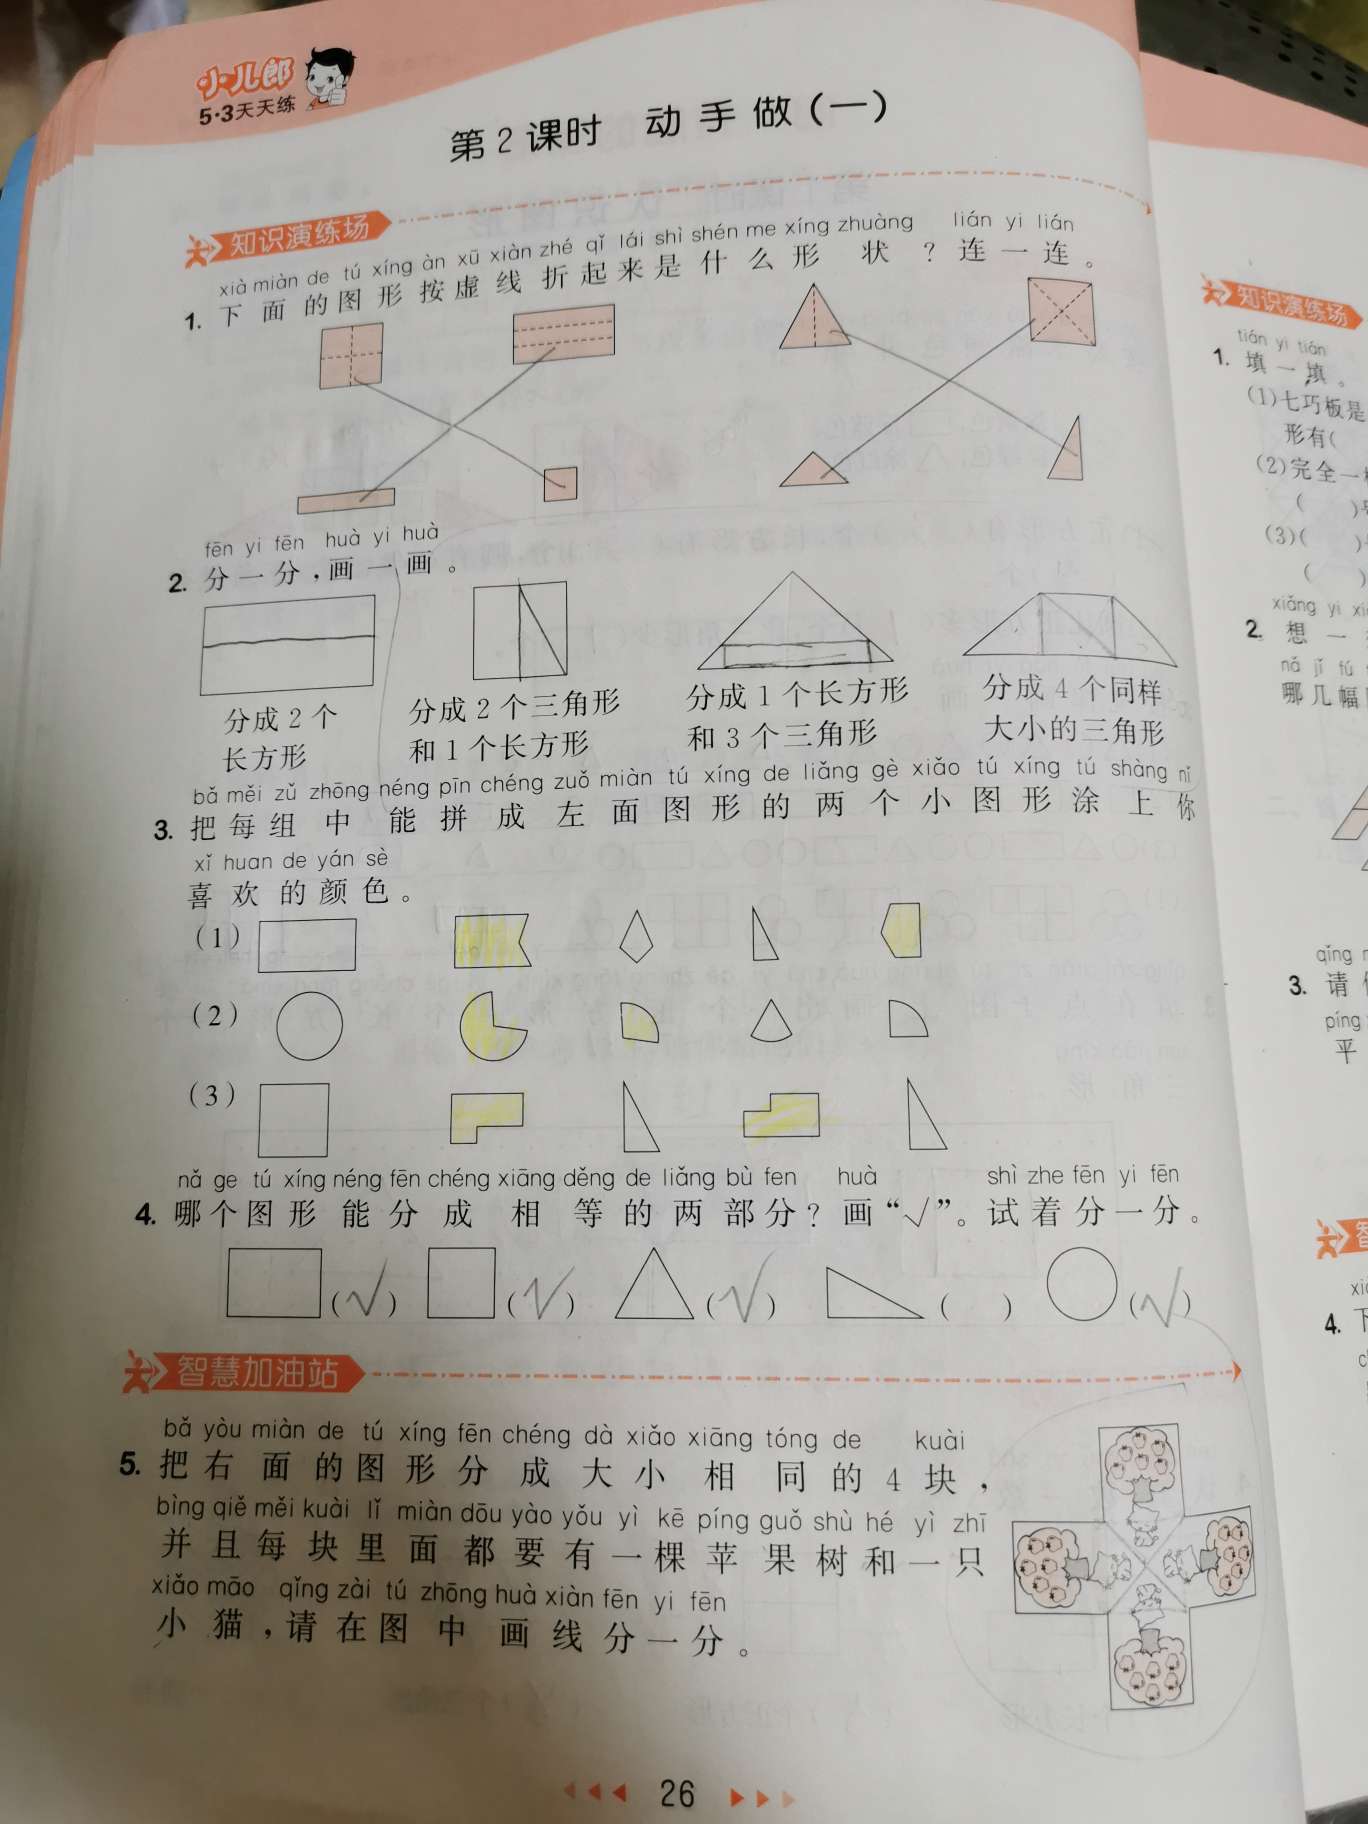 小儿郎
5·3天天练
第2课时 动手做(一)
知识演练场
xià miàn de tú xíng àn xū xiàn zhé qǐ lái shì shén me xíng zhuàng lián yi lián
1. 下面的图形按虚线折起来是什么形状?连一连。
fēn yi fēn huà yi huà
2. 分一分,画一画。
分成2个
长方形
分成2个三角形
和1个长方形
分成1个长方形
和3个三角形
分成4个同样
大小的三角形
bǎ měi zǔ zhōng néng pīn chéng zuǒ miàn tú xíng de liǎng gè xiǎo tú xíng tú shàng nǐ
3. 把每组中能拼成左面图形的两个小图形涂上你
xǐ huan de yán sè
喜欢的颜色。
(1)
(2)
(3)
nǎ ge tú xíng néng fēn chéng xiāng děng de liǎng bù fen huà shì zhe fēn yi fēn
4. 哪个图形能分成相等的两部分?画“√”。试着分一分。
(√) (√) (√) ( ) (√)
智慧加油站
bǎ yòu miàn de tú xíng fēn chéng dà xiǎo xiāng tóng de kuài
5. 把右面的图形分成大小相同的4块,
bìng qiě měi kuài lǐ miàn dōu yào yǒu yì kē píng guǒ shù hé yì zhī
并且每块里面都要有一棵苹果树和一只
xiǎo māo qǐng zài tú zhōng huà xiàn fēn yi fēn
小猫,请在图中画线分一分。
26
知识演练场
tián yi tián
1. 填一填。
(1)七巧板是
形有(
(2)完全一
( )
(3)(
( )
xiǎng yi
2. 想一
nǎ jǐ fú
哪几幅
qǐng
3. 请
píng
平
4.